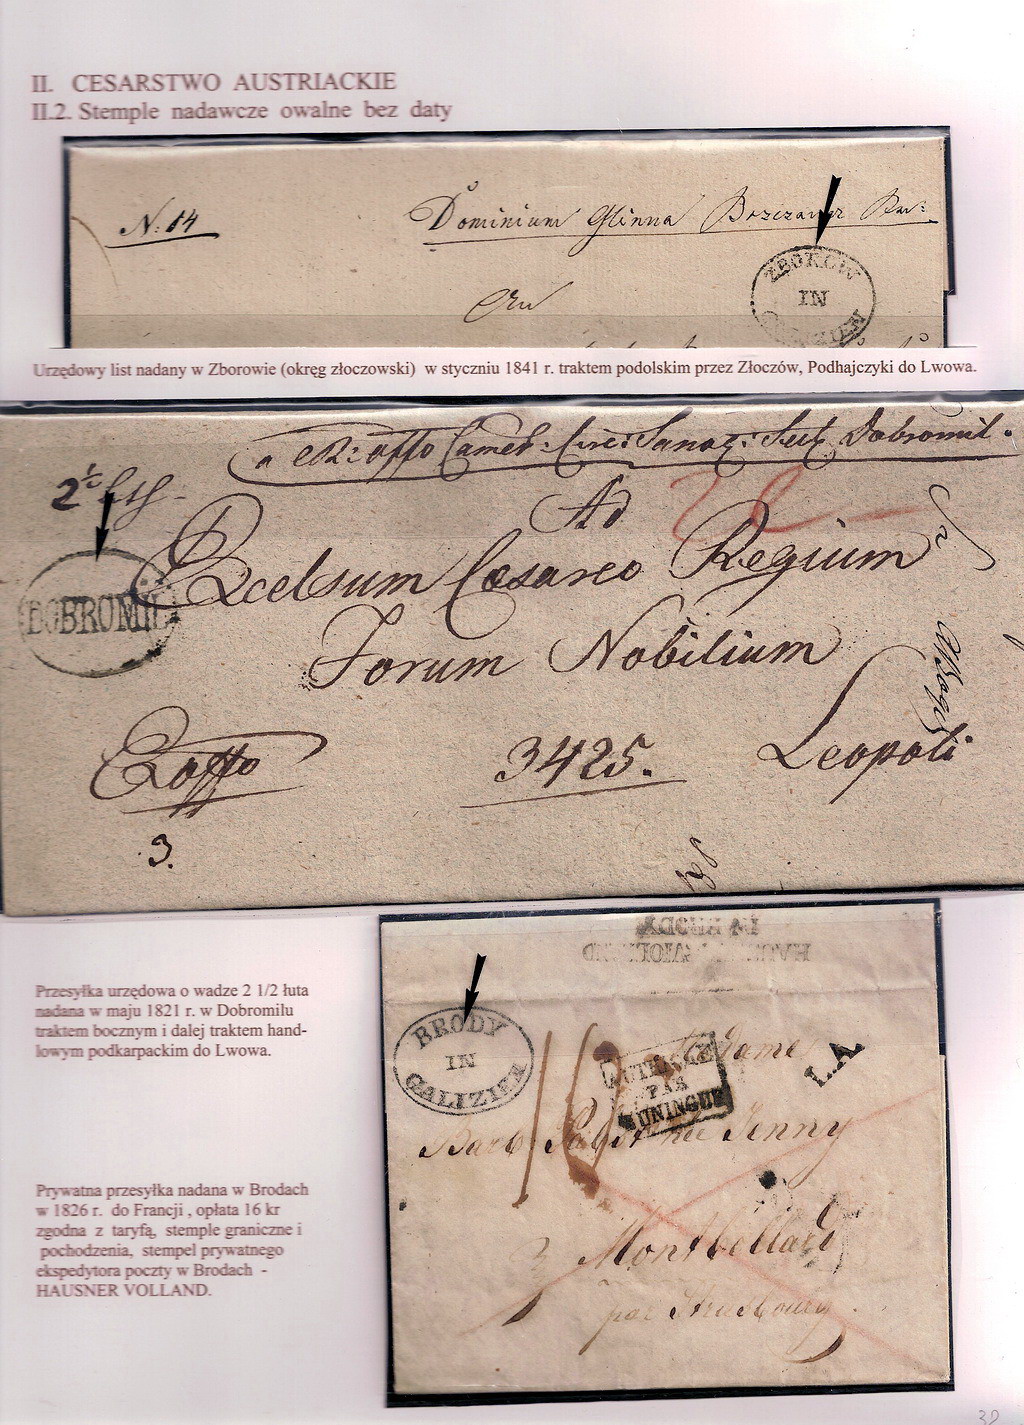 II. CESARSTWO AUSTRIACKIE
II.2. Stemple nadawcze owalne bez daty
N: 14
Dominium Glinna
An
ZBOROW
IN
GALIZIEN
Urzędowy list nadany w Zborowie (okręg złoczowski) w styczniu 1841 r. traktem podolskim przez Złoczów, Podhajczyki do Lwowa.
Dobromil.
Ad
Excelsum Cæsareo Regium
DOBROMIL
Forum Nobilium
Exoffo
3425.
Leopoli
3.
Przesyłka urzędowa o wadze 2 1/2 łuta
nadana w maju 1821 r. w Dobromilu
traktem bocznym i dalej traktem hand-
lowym podkarpackim do Lwowa.
Prywatna przesyłka nadana w Brodach
w 1826 r. do Francji , opłata 16 kr
zgodna z taryfą, stemple graniczne i
pochodzenia, stempel prywatnego
ekspedytora poczty w Brodach -
HAUSNER VOLLAND.
IN BRODY
BRODY
IN
GALIZIEN
16
AUTRICHE
PAR
HUNINGUE
L.A.
Jenny
Montbéliard
par Strasbourg.